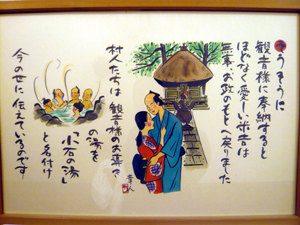 観音様に奉納すると
ほどなく愛しい米吉は
無事、お政のもとへ戻りました
村人たちは観音様のお導き
の湯を
「小石の湯」
と名付け
今の世に伝えているのです